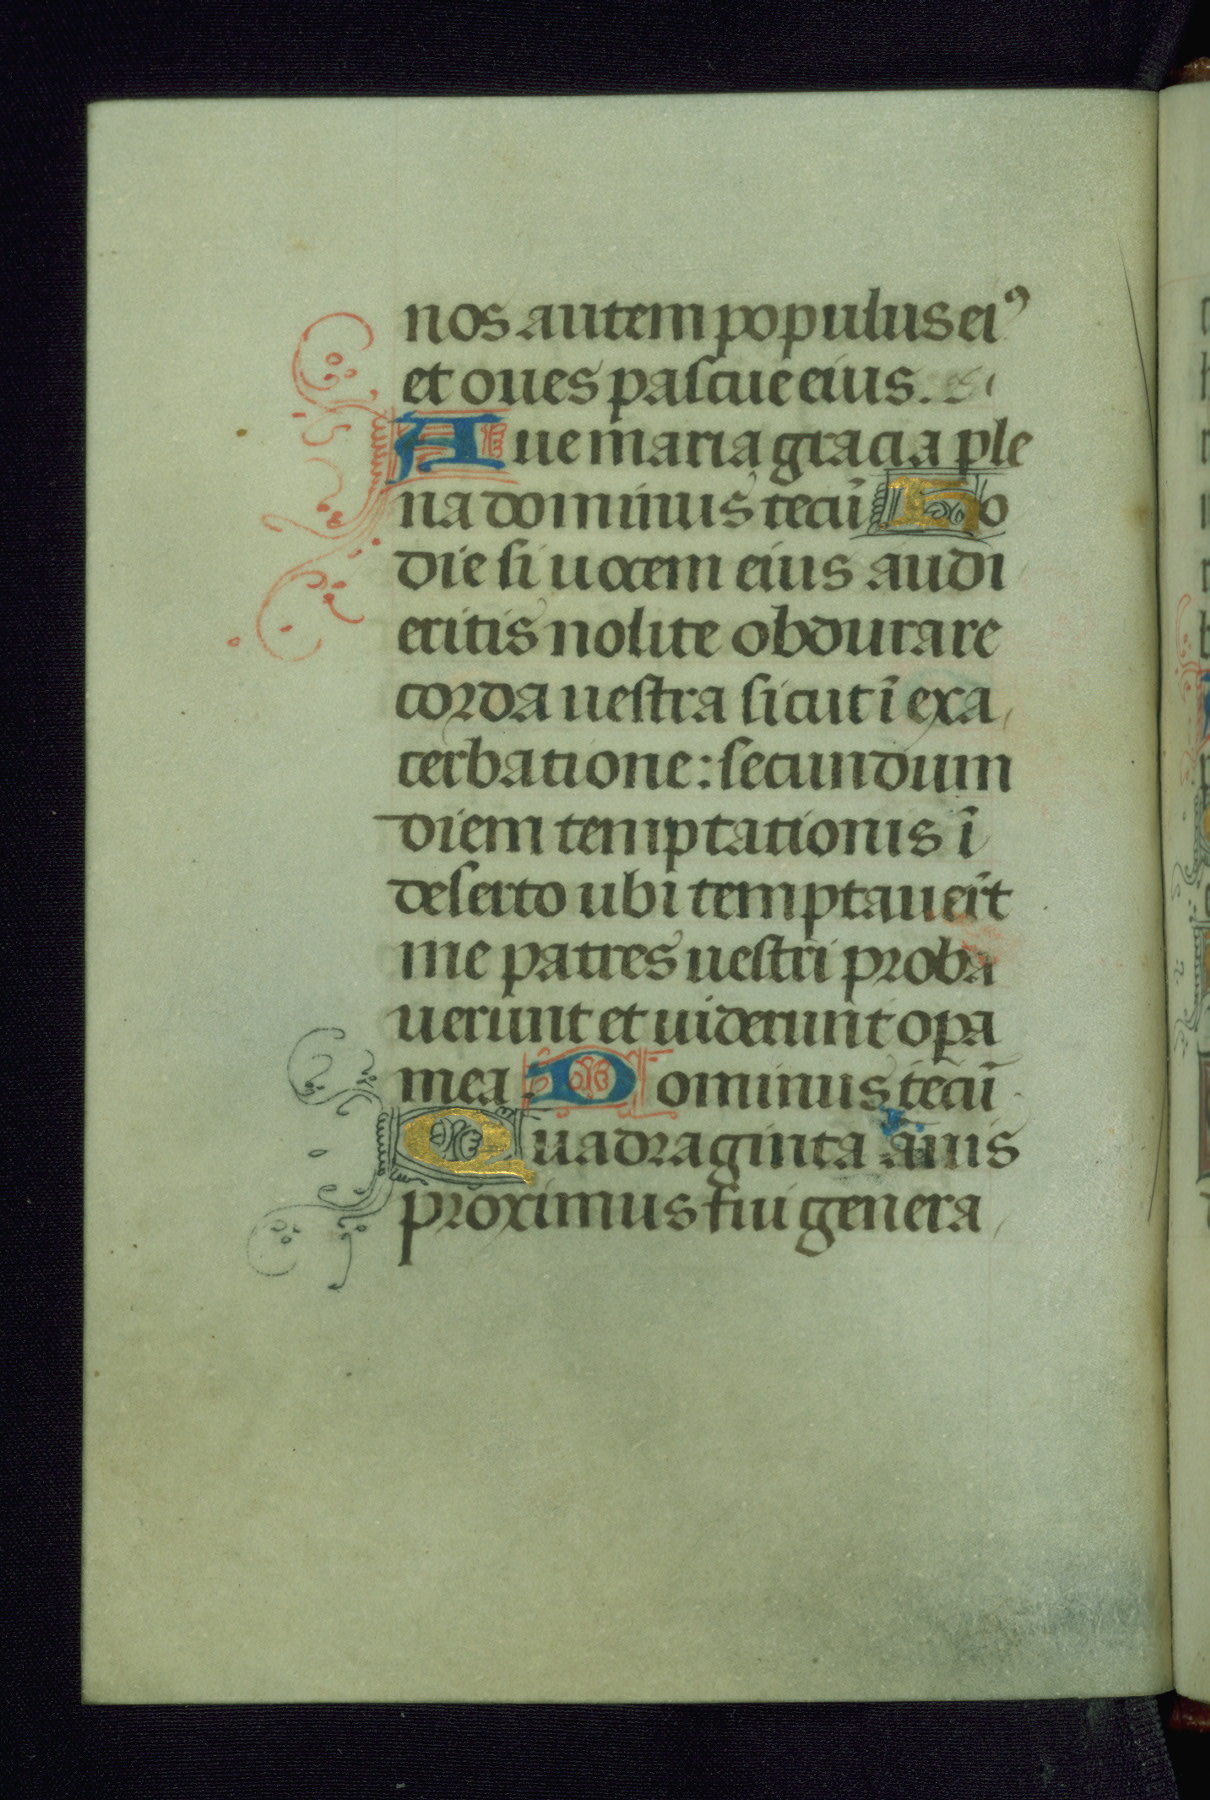 nos autem populus eiꝰ
et oues pascue eius.
Aue maria gracia ple
na dominus tecū Ho
die si uocem eius audi
eritis nolite obdurare
corda uestra sicut ī exa
cerbatione: secundum
diem temptationis ī
deserto ubi temptauer̄t
me patres uestri proba
uerunt et uiderunt opa
mea Dominus tecū
Quadraginta ānis
proximus fui genera